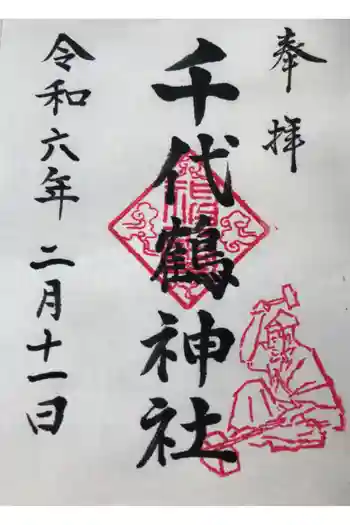 奉拝
千代鶴神社
令和六年二月十一日